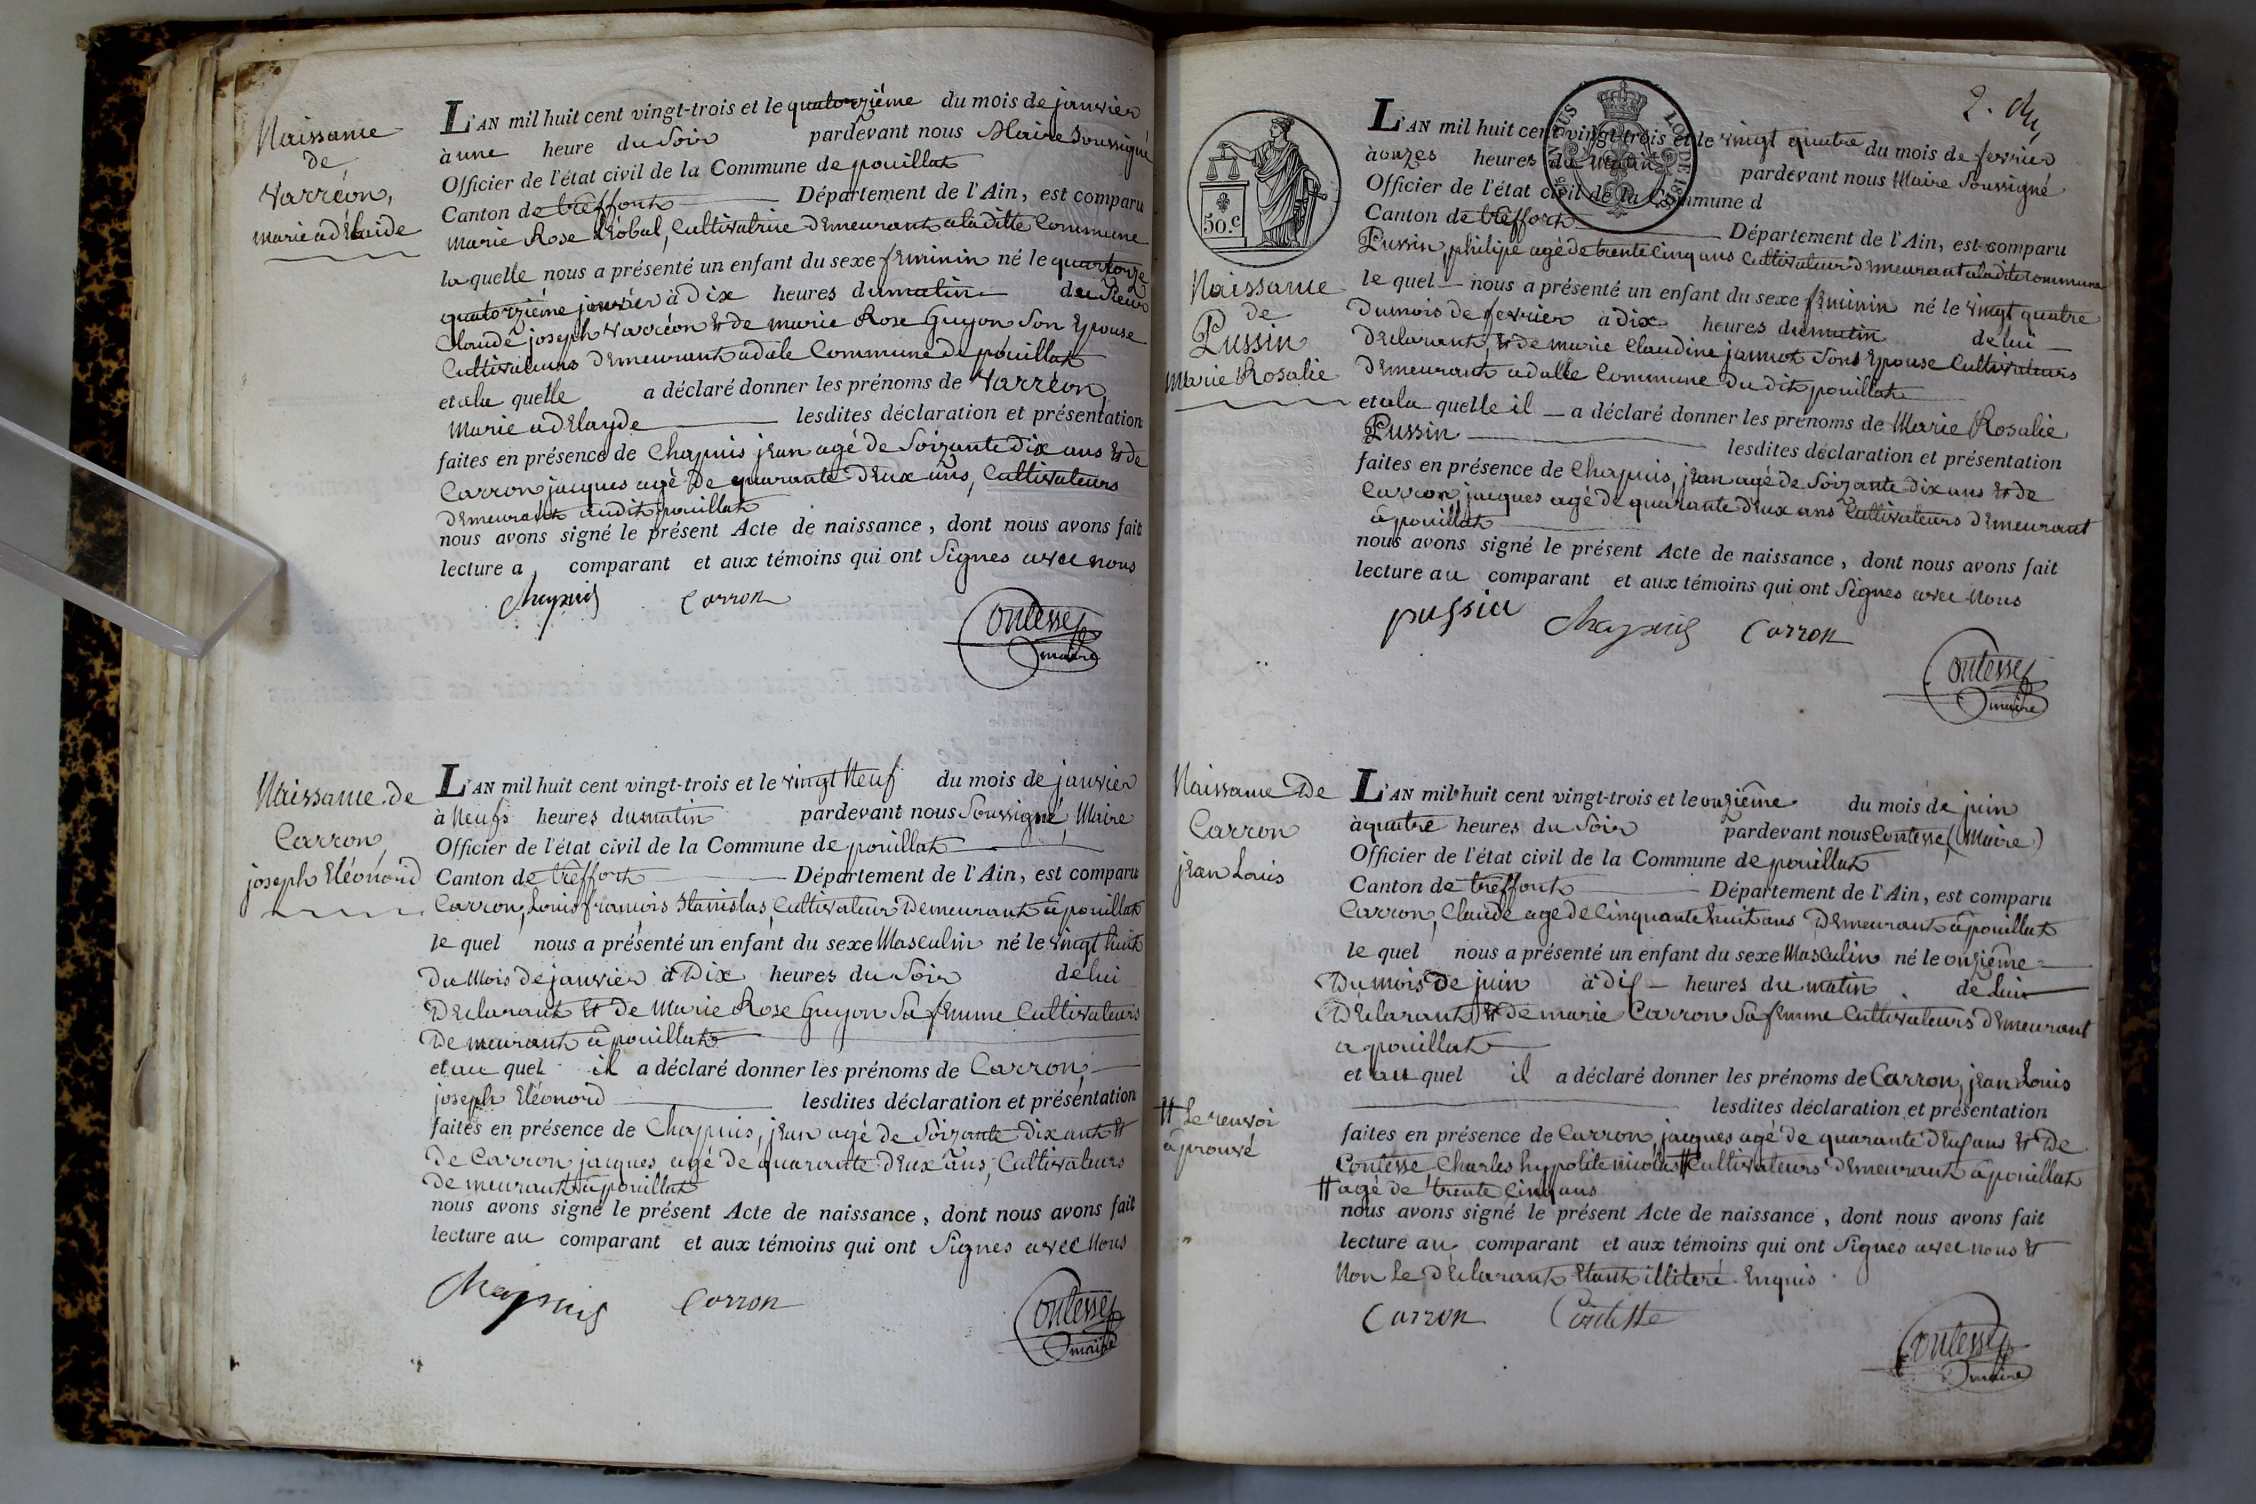 Naissance
de
Varréon,
marie adélaide
L'AN mil huit cent vingt-trois et le quatorziéme du mois de janvier
à une heure du Soir pardevant nous Maire Soussigné
Officier de l'état civil de la Commune de pouillat
Canton de treffort Département de l'Ain, est comparu
Marie Rose Réobal, Cultivatrice Demeurant a la ditte Commune
la quelle nous a présenté un enfant du sexe feminin né le quartorze
quatorziéme janvier à Dix heures du matin de Sieur
Claude joseph Varréon Et de marie Rose Guyon Son Epouse
Cultivateurs Demeurant a dále Commune de pouillat
et a la quelle a déclaré donner les prénoms de Varréon,
Marie adElayde lesdites déclaration et présentation
faites en présence de Chapuis jean agé de Soizante Dix ans Et de
Carron jacques agé De quarante DEux ans, Cultivateurs
DEmeurant audit pouillat
nous avons signé le présent Acte de naissance, dont nous avons fait
lecture a comparant et aux témoins qui ont Signes avec nous
Chapuis Carron
Contesse
maire
Naissance de
Carron,
joseph Eléonord
L'AN mil huit cent vingt-trois et le vingt Neuf du mois de janvier
à Neufs heures du matin pardevant nous Soussigné, Maire
Officier de l'état civil de la Commune de pouillat
Canton de treffort Département de l'Ain, est comparu
Carron, Louis francois Stanislas, Cultivateur Demeurant à pouillat
le quel nous a présenté un enfant du sexe Masculin né le vingt huit
Du Mois de janvier à Dix heures du Soir de lui
DEclarant Et De Marie Rose Guyon Sa fEmme Cultivateurs
De meurant à pouillat
et au quel il a déclaré donner les prénoms de Carron,
joseph Eléonord lesdites déclaration et présentation
faites en présence de Chapuis, jean agé de Soizante Dix ans Et
De Carron jacques agé De quarante DEux ans, Cultivateurs
De meurant à pouillat
nous avons signé le présent Acte de naissance, dont nous avons fait
lecture au comparant et aux témoins qui ont Signes avec Nous
Chapuis Carron
Contesse
maire
2.
50.c
LOI DE
Naissance
de
Pussin
Marie Rosalie
L'AN mil huit cent vingt-trois et le vingt quatre du mois de fevrier
à onzes heures du matin pardevant nous Maire Soussigné
Officier de l'état civil de la Commune d
Canton de treffort Département de l'Ain, est comparu
Pussin, philipe agé de trente Cinq ans Cultivateur DEmeurant a la dite commune
le quel nous a présenté un enfant du sexe feminin né le vingt quatre
Du mois de fevrier à Dix heures du matin de lui
DEclarant, Et de marie Claudine jannot Sont Epouse Cultivateurs
DEmeurant a dalle Commune Du Dit pouillat
et a la quelle il a déclaré donner les prénoms de Marie Rosalie
Pussin lesdites déclaration et présentation
faites en présence de Chapuis, jean agé de Soizante dix ans Et de
Carron, jacques agé de quarante DEux ans Cultivateurs DEmeurant
à pouillat
nous avons signé le présent Acte de naissance, dont nous avons fait
lecture au comparant et aux témoins qui ont Signes avec Nous
pussin Chapuis Carron
Contesse
maire
Naissance De
Carron
jean Louis
L'AN mil huit cent vingt-trois et le onziême du mois de juin
à quatre heures du Soir pardevant nous Contesse, (Maire)
Officier de l'état civil de la Commune de pouillat
Canton de treffort Département de l'Ain, est comparu
Carron, Claude agé de Cinquante huit ans DEmeurant à pouillat
le quel nous a présenté un enfant du sexe Masculin né le onziême
Du mois De juin à dix heures du matin de lui
DEclarant Et de marie Carron Sa fEmme Cultivateurs DEmeurant
a pouillat
et au quel il a déclaré donner les prénoms de Carron, jean Louis
lesdites déclaration et présentation
# Le renvoi
aprouvé
faites en présence de Carron, jacques agé de quarante DEux ans Et De
Contesse Charles hypolite nicolas # Cultivateurs DEmeurant à pouillat
# agé de trente Cinq ans
nous avons signé le présent Acte de naissance, dont nous avons fait
lecture au comparant et aux témoins qui ont Signes avec nous Et
Non Le DEclarant Etant illiteré Enquis
Carron Contesse
Contesse
maire